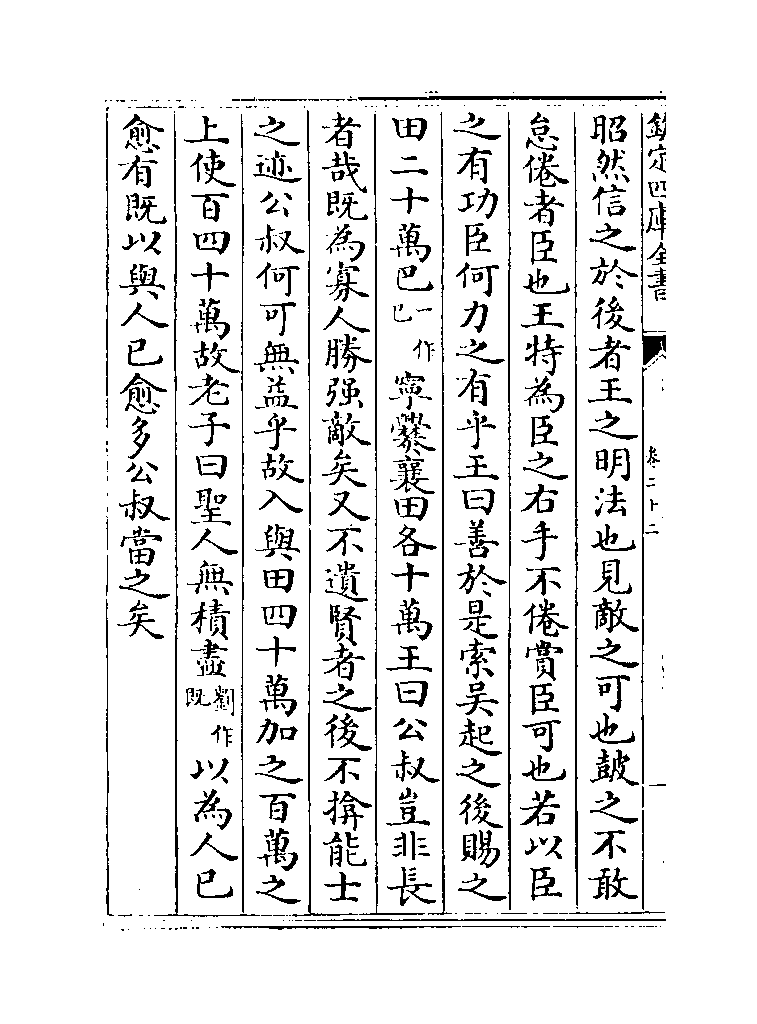 欽定四庫全書
卷二十二
昭然信之於後者王之明法也見敵之可也鼓之不敢
怠倦者臣也王特為臣之右手不倦賞臣可也若以臣
之有功臣何力之有乎王曰善於是索吳起之後賜之
田二十萬巴一作巳寧爨襄田各十萬王曰公叔豈非長
者哉既為寡人勝强敵矣又不遺賢者之後不揜能士
之迹公叔何可無益乎故入與田四十萬加之百萬之
上使百四十萬故老子曰聖人無積盡劉作既以為人已
愈有既以與人已愈多公叔當之矣